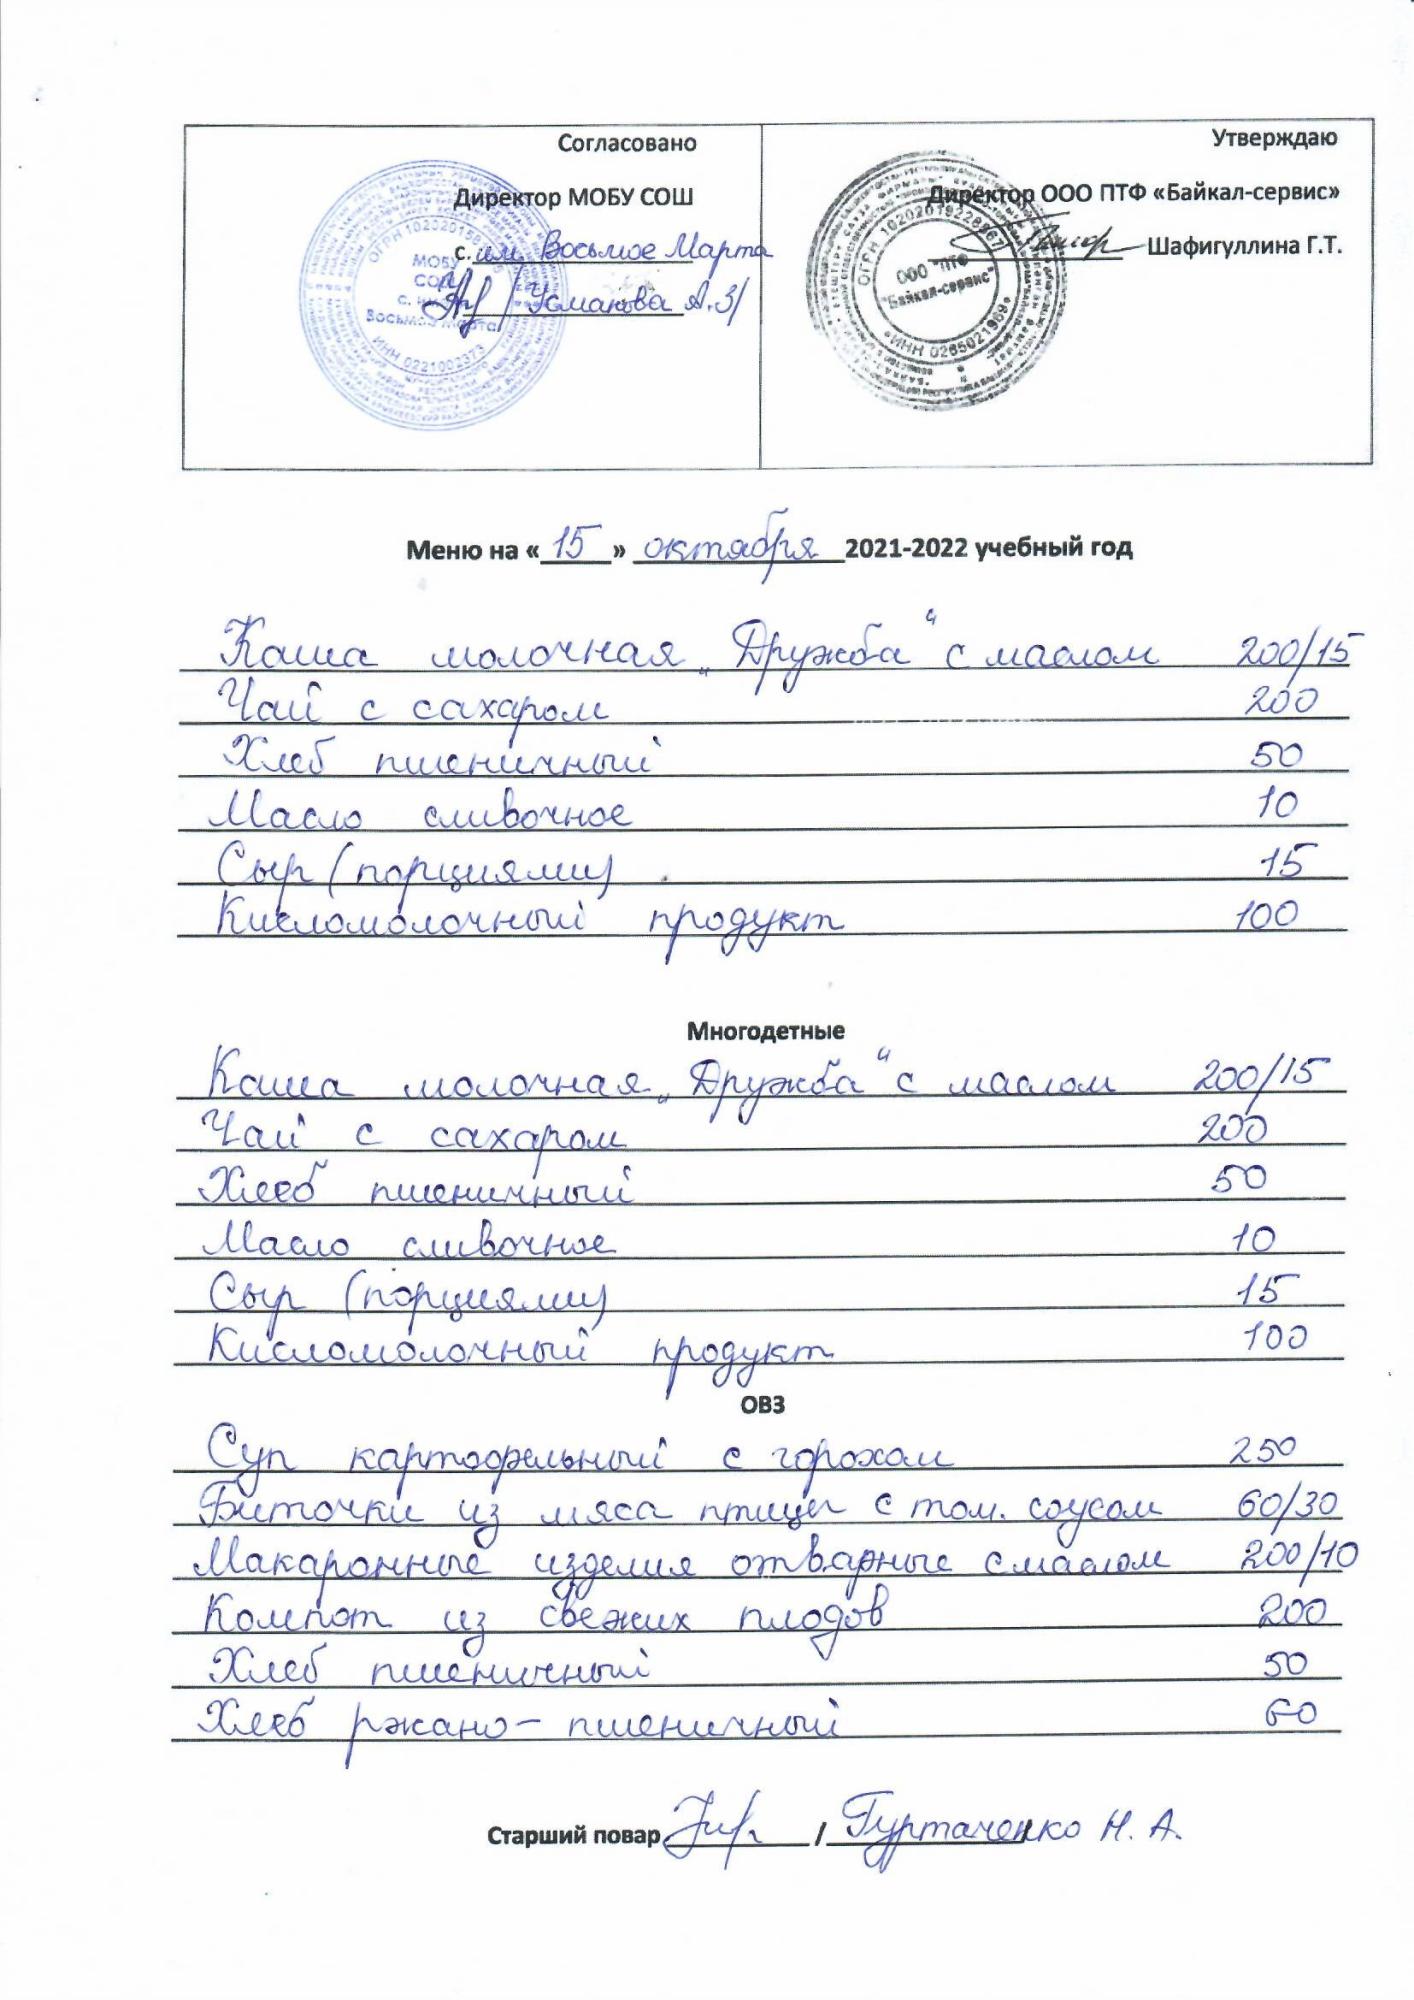 Согласовано
Директор МОБУ СОШ
с. им. Восьмое Марта
/Усманова А.З/
ОГРН 1020201581
МОБУ
СОШ
с. им.
Восьмое Марта
ИНН 0221002373
Утверждаю
Директор ООО ПТФ «Байкал-сервис»
Шафигуллина Г.Т.
ООО "ПТФ
"Байкал-сервис"
ИНН 0265021969
Меню на «15» октября 2021-2022 учебный год
Каша молочная „Дружба“ с маслом 200/15
Чай с сахаром 200
Хлеб пшеничный 50
Масло сливочное 10
Сыр (порциями) 15
Кисломолочный продукт 100
Многодетные
Каша молочная „Дружба“ с маслом 200/15
Чай с сахаром 200
Хлеб пшеничный 50
Масло сливочное 10
Сыр (порциями) 15
Кисломолочный продукт 100
ОВЗ
Суп картофельный с горохом 250
Биточки из мяса птицы с том. соусом 60/30
Макаронные изделия отварные с маслом 200/10
Компот из свежих плодов 200
Хлеб пшеничный 50
Хлеб ржано-пшеничный 60
Старший повар / Гуртаченко Н. А.